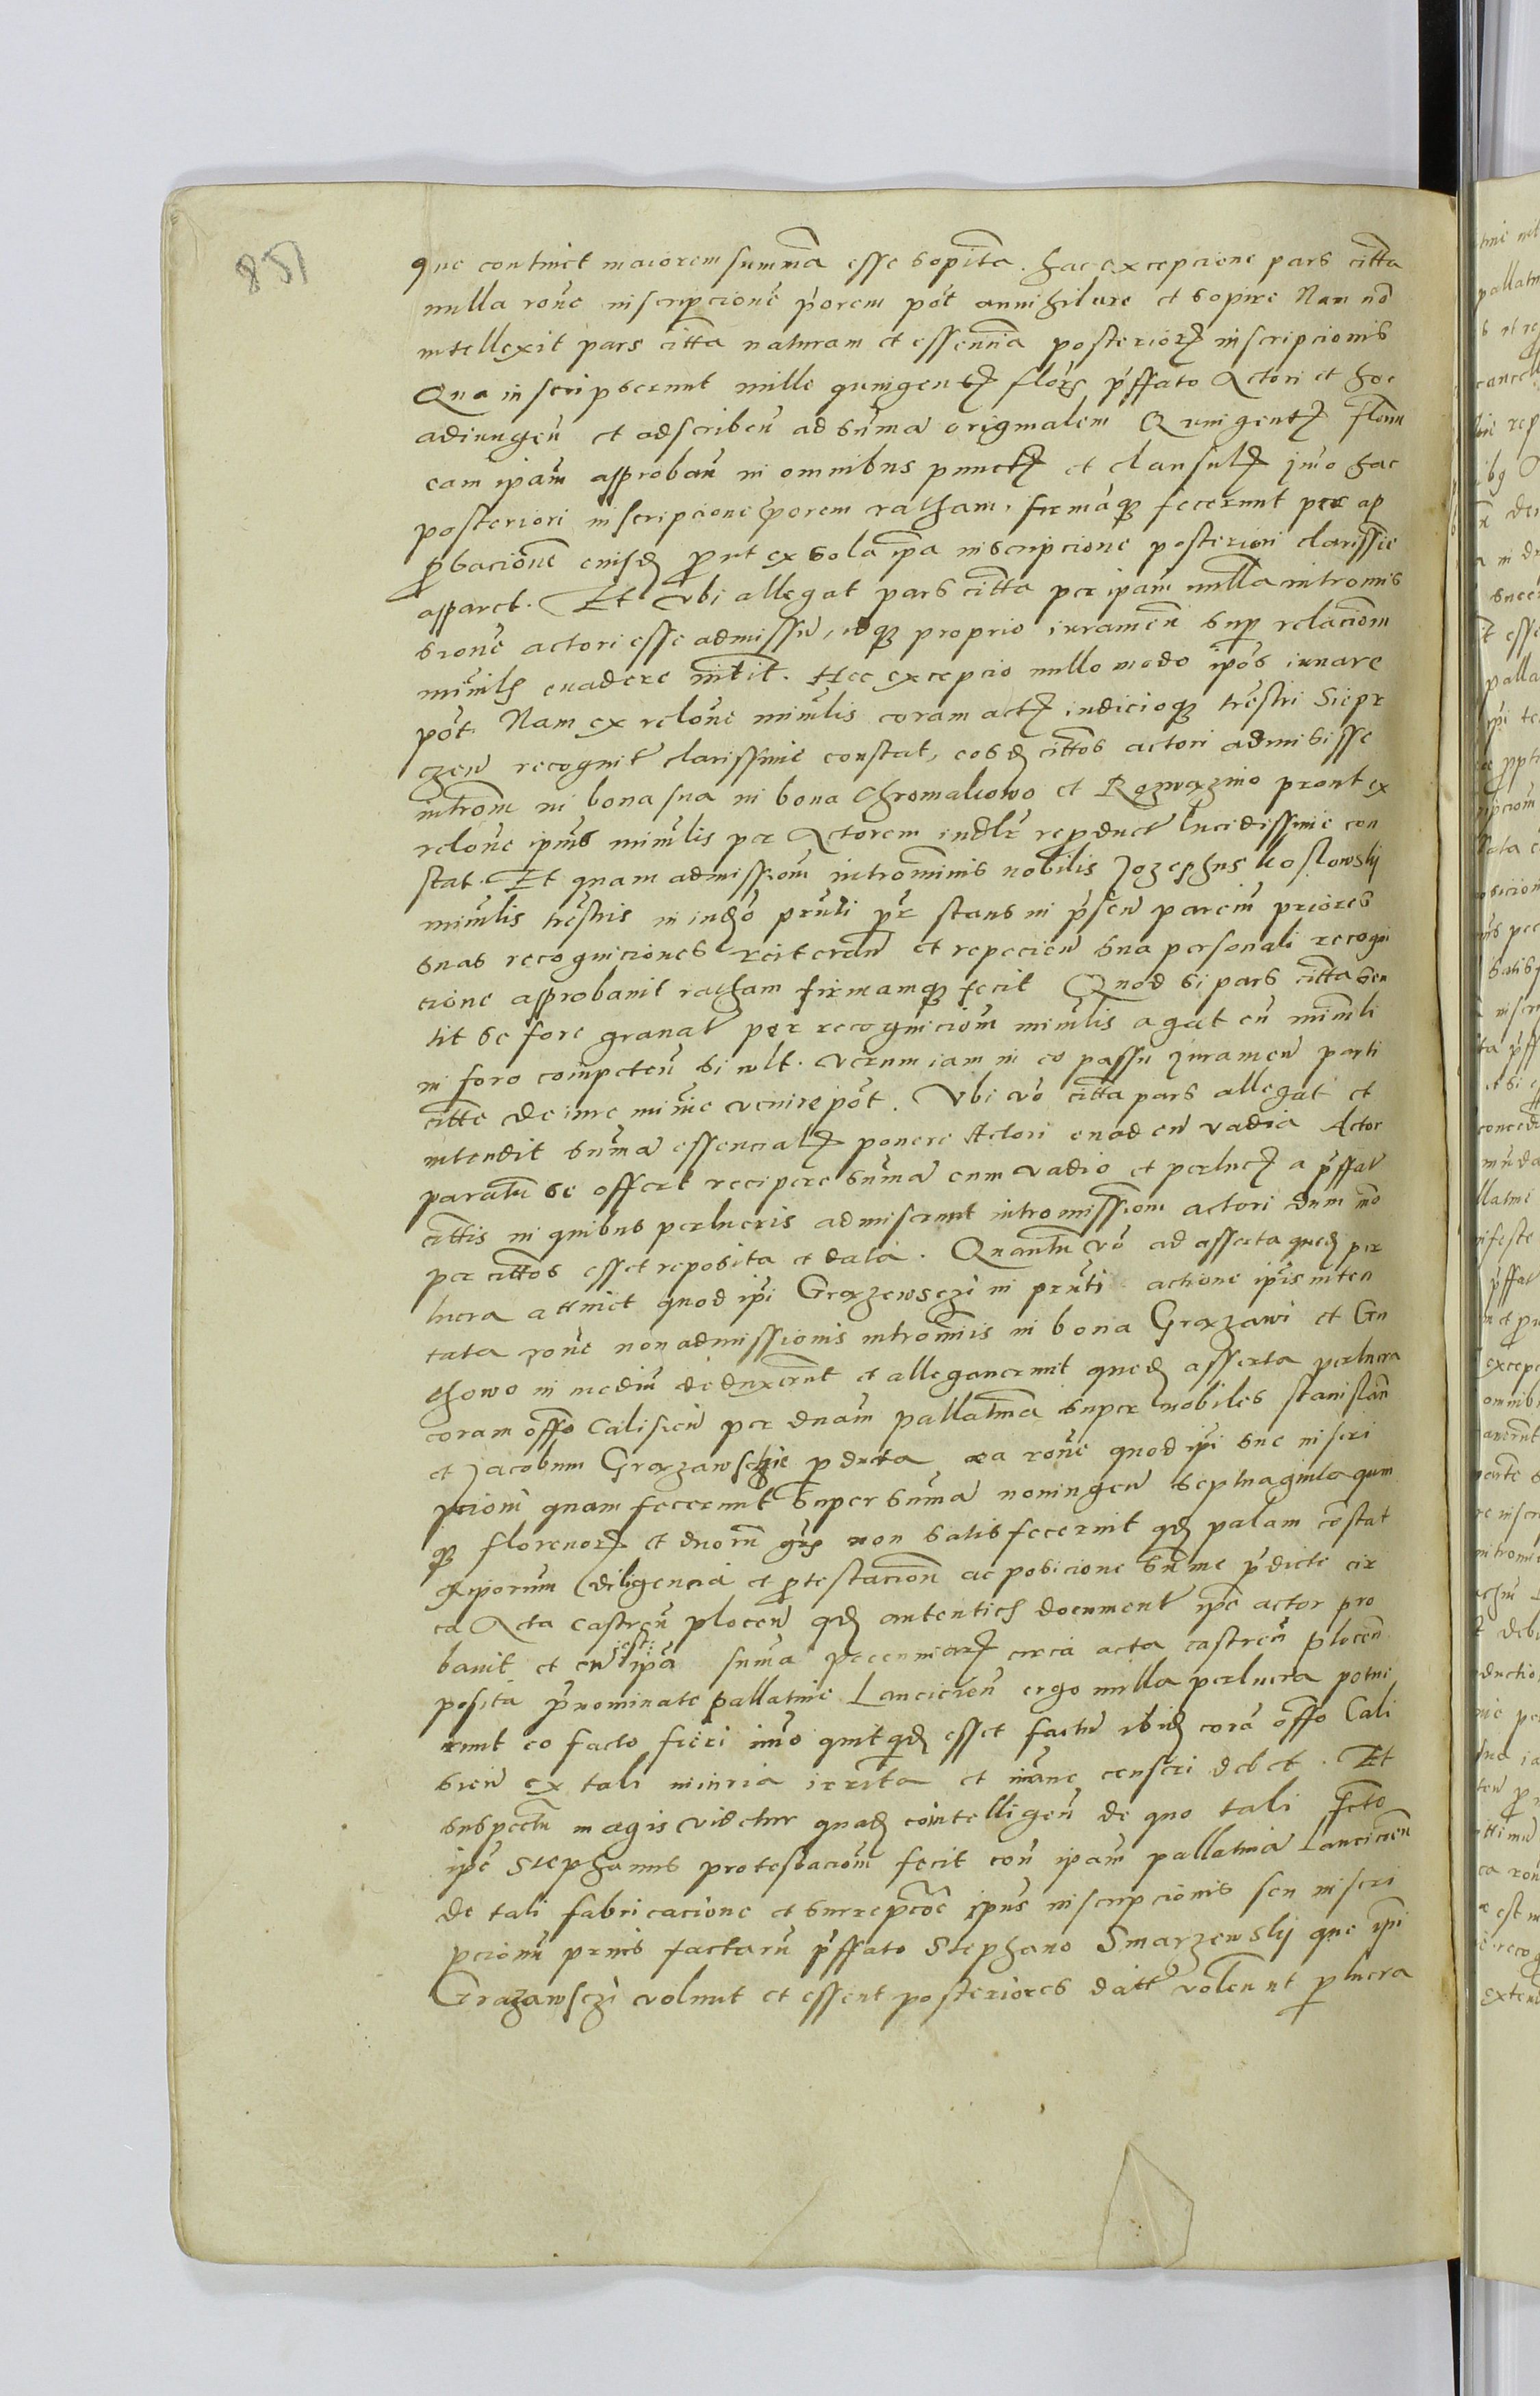 851
que continet maiorem summā esse sopitā. Hac excepcione pars citta
nulla rone inscripcionē porem pot annihilare et sopire Nam nō
intellexit pars citta naturam et essenciā posteriorꝫ inscripcionis
Qua inscripserunt mille quingentꝫ flor pffato Actori et hoc
adiungen et adscriben ad summā originalem Quingentꝫ floren
eam ipam approban in omnibus punctꝫ et clausulꝫ ymo hac
posteriori inscripcione porem ratham firmāqꝫ fecerunt per ap
pbacionē eiusdꝫ prout ex sola ipa inscripcione posteriori clarissie
apparet. Et Vbi allegat pars citta per ipam nulla intromis
sionē actori esse admissā, idqꝫ proprio iuramen sup relacionē
minrlis euadere nitit. Hec excepcio nullo modo ipos iuuare
pot. Nam ex relone minrlis coram actꝫ iudicioqꝫ trestri Siepr
czen recognit clarissime constat, eosdꝫ cittos actori admisisse
introm in bona sua in bona Chromakowo et prout ex
relone ipius minrlis per Actorem iudlr reproduct lucidissime con
stat. Et quam admissionē intromīnis nobilis Jozephus koslowskij
minrlis trestris in iudo prnti pr stans in psen parciū priores
suas recogniciones reiteran et repecien sua personali recogni
cione approbauit ratham firmamqꝫ fecit Quod si pars citta sen
tit se fore grauat per recognicionē minrlis agat cū minrli
in foro competen si wlt. Verum iam in eo passu iuramen parti
citte de iure minime venire pot. Vbi vo citta pars allegat et
intendit summā essencialꝫ ponere Actori euaden vadia Actor
paratū se offert recipere summā cum vadio et perlucꝫ a pffat
cittis in quibus perlucris admiserunt intromissionē actori dum mo
per cittos esset reposita et data. Quantū vo ad asserta quedꝫ per
lucra attinet quod ipi Grazewsczi in prnti actione ipis inten
tata rone non admissionis intromīnis in bona Grazawi et Gu
chowo in mediū deduxerunt et allegauerunt quedꝫ asserta perlucra
coram offo Calisien per dnam pallatinā super nobiles Stanislaū
et Jacobum Grazawsczie pducta ea rone quod ipi sue inscri
pcioni quam fecerunt super summā noningen septuaginta quin
qꝫ florenorꝫ et duorū grs non satisfecerint qdꝫ palam constat
ex ipsorum diligencia et ptestacionē ac posicione summe pdicte cir
ca Acta castren plocen qdꝫ autentich document ipe actor pro
bauit et cū esset ipa summa pecuniarꝫ circa acta castren plocen
posita pnominate pallatine Lancicien ergo nulla perlucra potue
runt eo facto fieri imo quitqdꝫ esset factū ibidꝫ corā offo Cali
sien ex tali iniuria irrita et inane censeri debet. Et
suspectū magis videtur quadꝫ cointelligen de quo tali fcto
ipe Stephanus protestacionē fecit con ipam pallatinā Lancicien
de tali fabricacione et surrepcoe ipius inscripcionis seu inscri
pcionū prius factarū pffato Stephano Smarzewskij que ipi
Grazawsczi volunt et essent posteriores datt volennt plucra